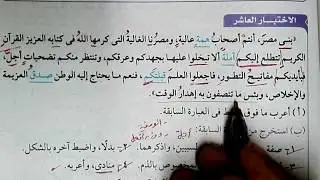 الاختبار العاشر
«بنى مصر، أنتم أصحاب همة عالية، ومصرنا الغالية التى كرمها الله فى كتابه العزيز القرآن
الكريم تتطلع إليكم آملة ألا تبخلوا عليها بجهدكم وعرقكم، وتنتظر منكم تضحيات أجل؛
فبأيديكم مفاتيح التطور، فاجعلوا العلم قبلتكم، فنعم ما يحتاج إليه الوطن صدق العزيمة
والإخلاص، وبئس ما تتصفون به إهدار الوقت».
(أ) أعرب ما فوق العبارة السابقة.
(ب) استخرج من
١- صفة ين، واذكرهما. ٢- بدلًا، واضبط آخره بالشكل.
بالذم. ٤- منادى، وأعربه.